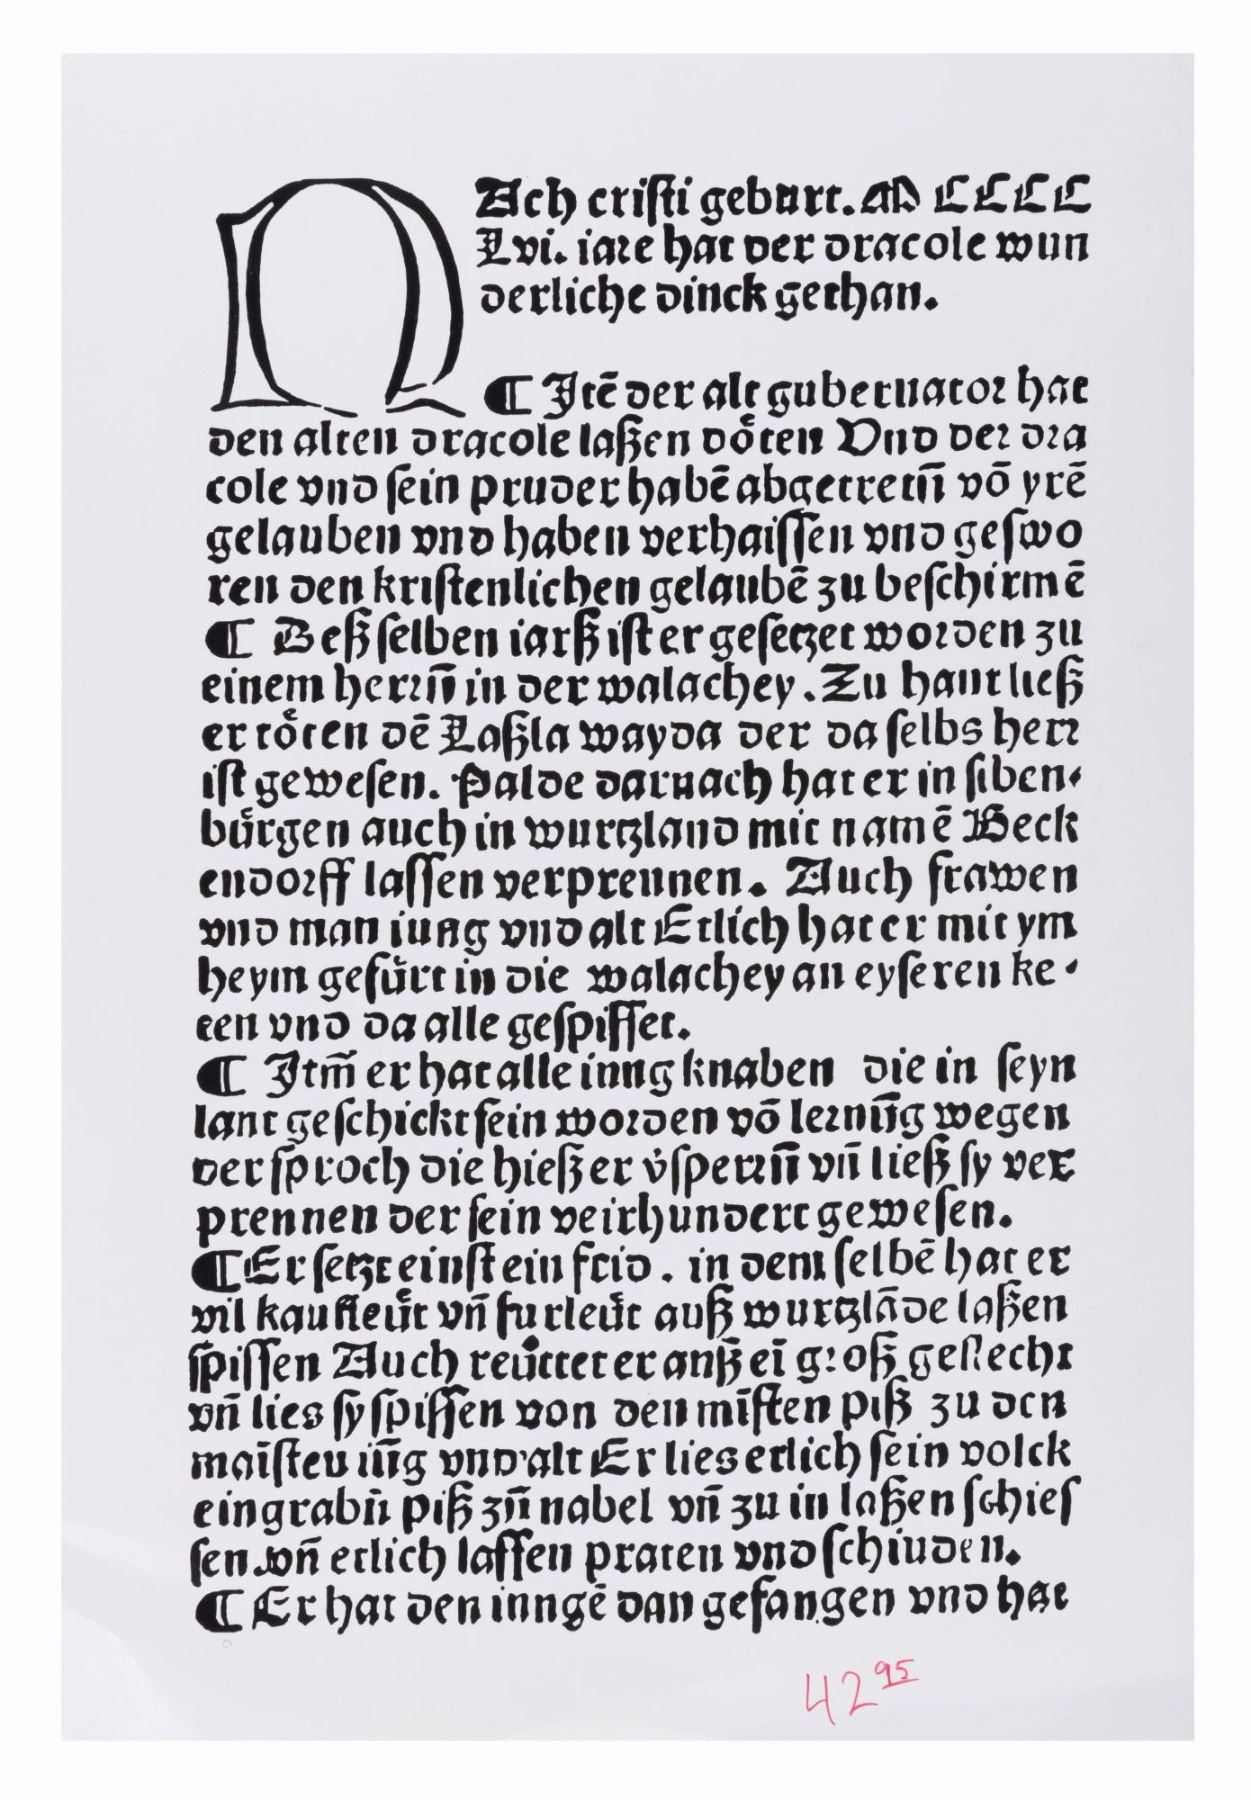 NAch cristi geburt. M CCCC
Lvi. iare hat der dracole wun
derliche dinck gethan.
¶ Jtē der alt gubernator hat
den alten dracole laßen doͤten Vnd der dra
cole vnd sein pruder habē abgetretn̄ vō yrē
gelauben vnd haben verhaissen vnd geswo
ren den kristenlichen gelaubē zu beschirmē
¶ Deß selben iarß ist er gesetzet worden zu
einem herrn̄ in der walachey. Zu hant ließ
er toͤten dē Laßla wayda der da selbs herr
ist gewesen. Palde darnach hat er in siben⸗
buͤrgen auch in wurtzland mit namē Beck
endorff lassen verprennen. Auch frawen
vnd man iung vnd alt Etlich hat er mit ym
heym gefuͤrt in die walachey an eyseren ke⸗
ten vnd da alle gespisset.
¶ Jtm̄ er hat alle inng knaben die in seyn
lant geschickt sein worden vō lernūg wegen
der sproch die hieß er v̇sperrn̄ vn̄ ließ sy ver
prennen der sein veirhundert gewesen.
¶ Er setzt einst ein frid. in dem selbē hat er
vil kaufleuͤt vn̄ furleuͤt auß wurtzlāde laßen
spissen Auch reuͤttet er anß eī groß geslecht
vn̄ lies sy spissen von den mīsten piß zu den
maīsten iūg vnd alt Er lies etlich sein volck
eingrabn̄ piß zū nabel vn̄ zu in laßen schies
sen vn̄ etlich lassen praten vnd schinden.
¶ Er hat den inngē dan gefangen vnd hat
42 95